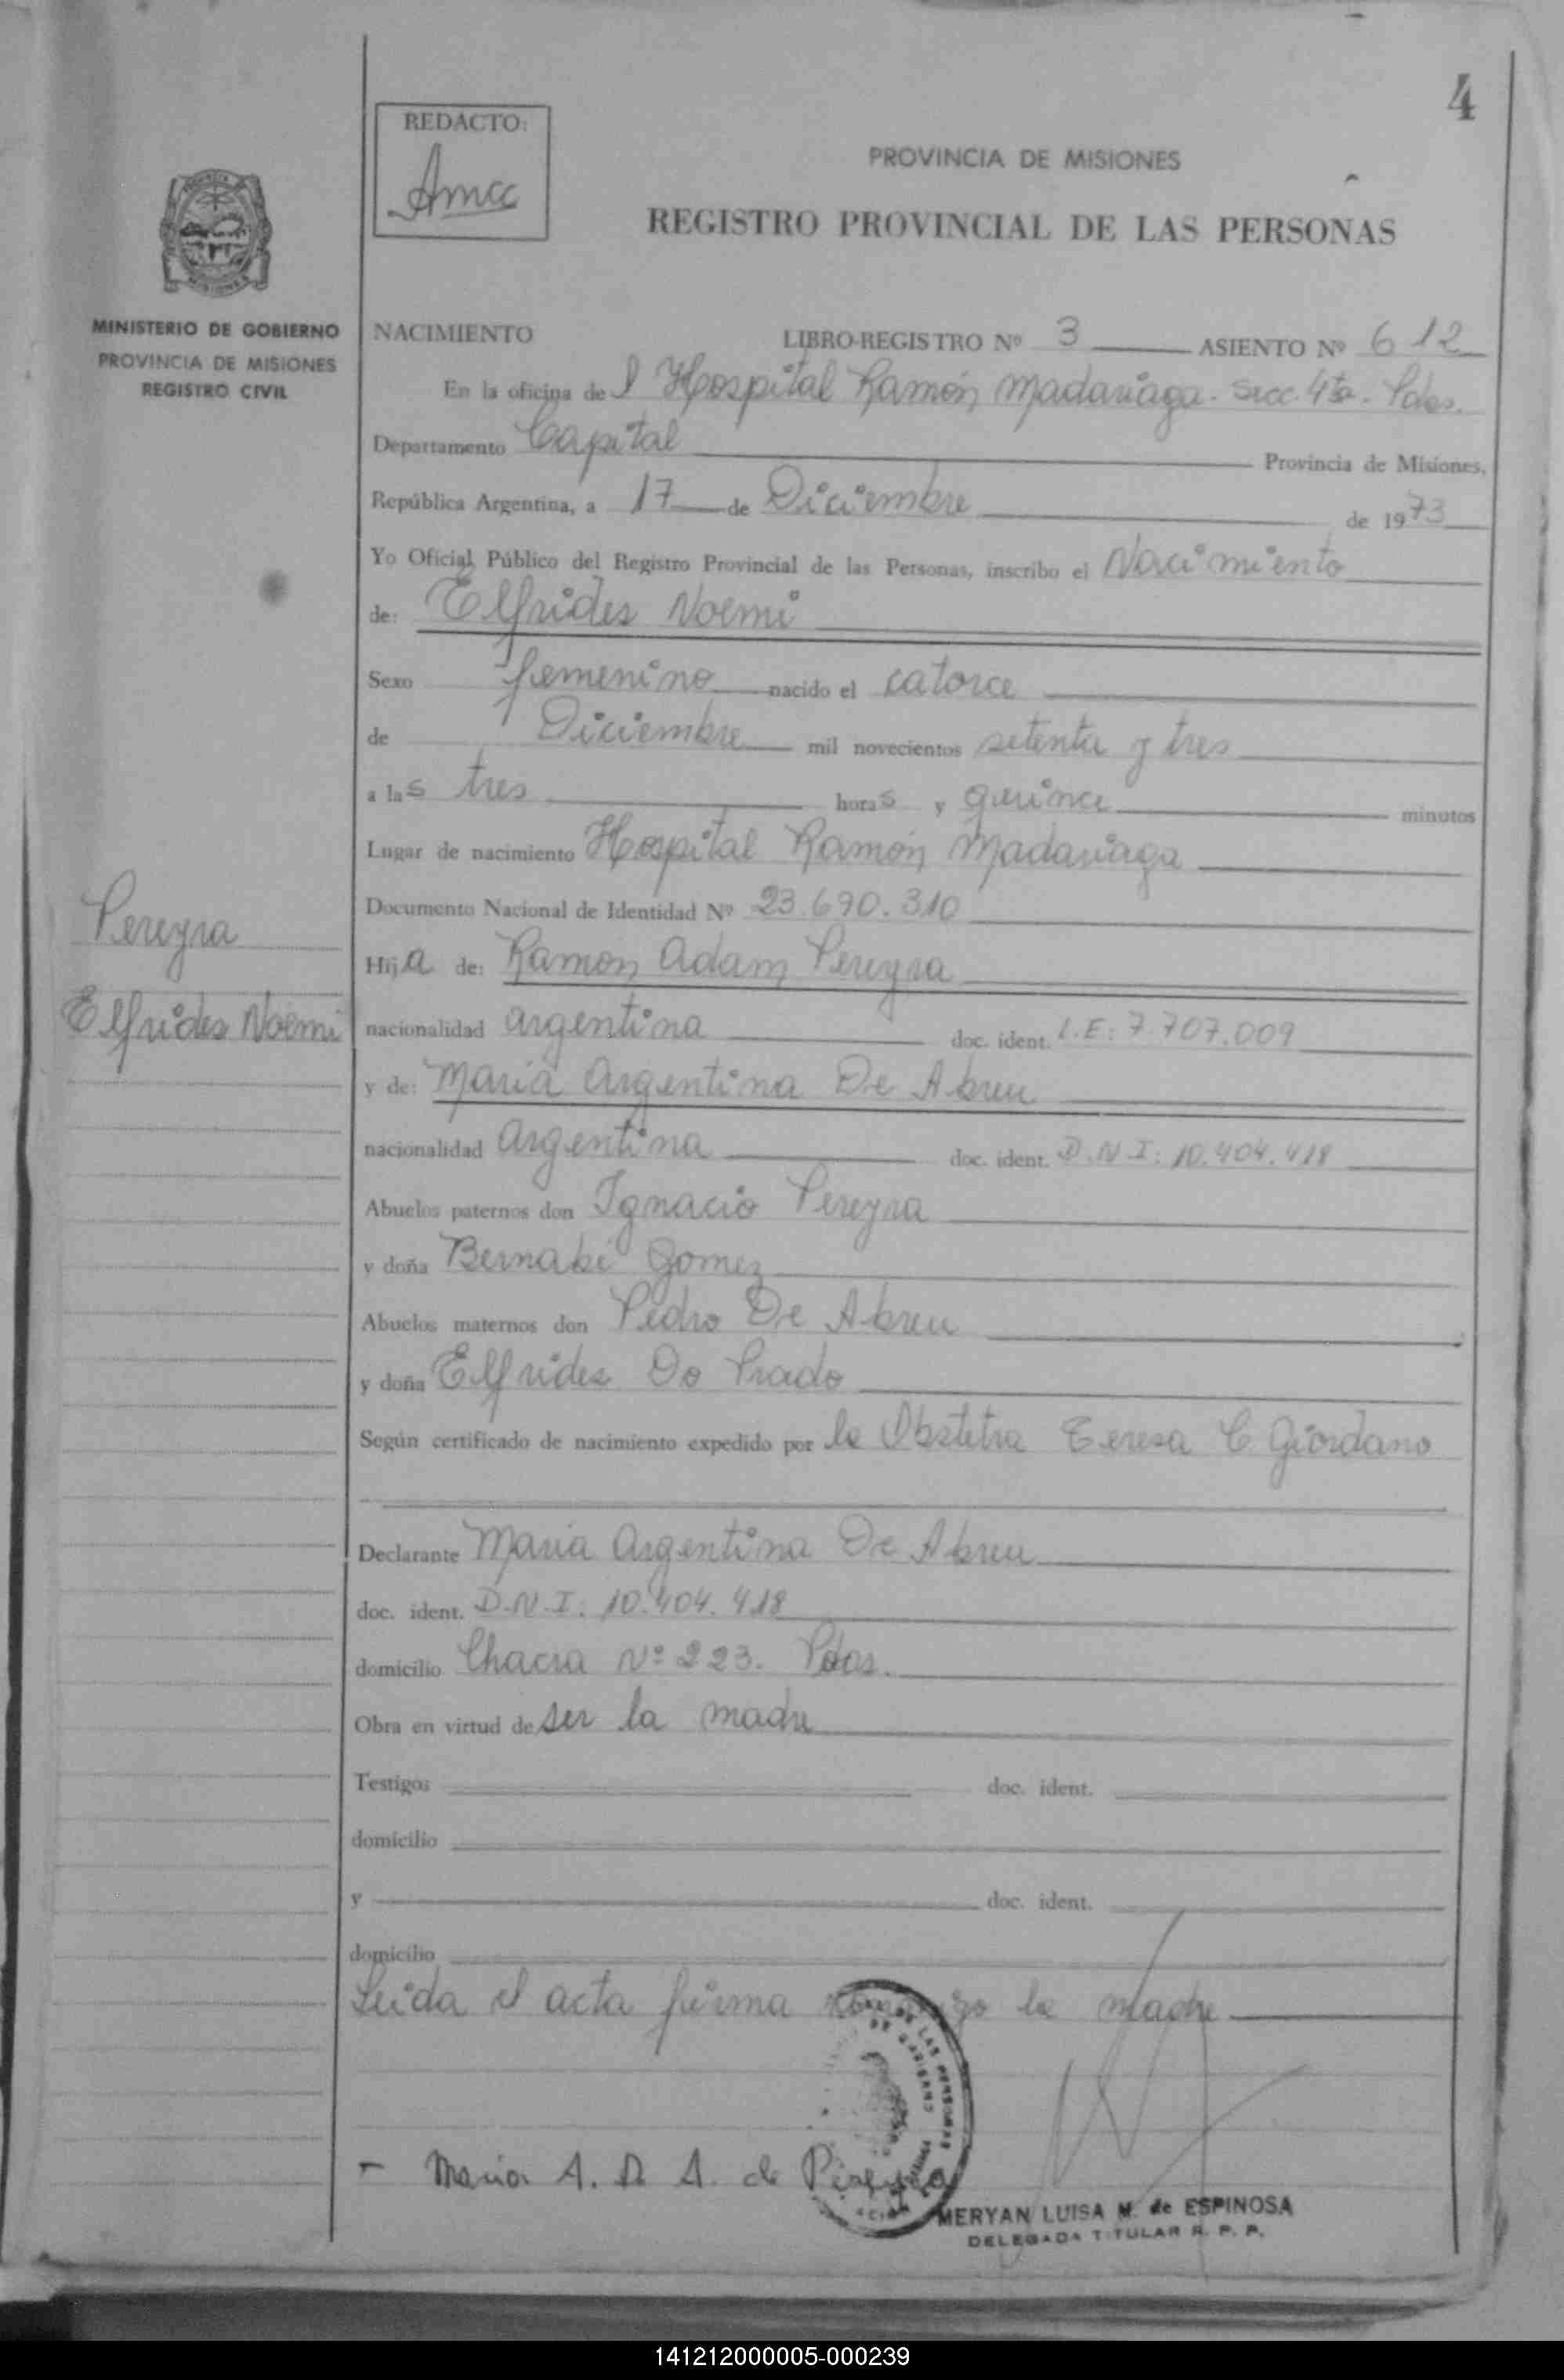 4
REDACTO:
Amcc
PROVINCIA DE MISIONES
REGISTRO PROVINCIAL DE LAS PERSONAS
MINISTERIO DE GOBIERNO
PROVINCIA DE MISIONES
REGISTRO CIVIL
NACIMIENTO LIBRO-REGISTRO Nº 3 ASIENTO Nº 612
En la oficina del Hospital Ramón Madariaga. Secc. 4ta. Pdas.
Departamento Capital Provincia de Misiones,
República Argentina, a 17 de Diciembre de 1973
Yo Oficial Público del Registro Provincial de las Personas, inscribo el Nacimiento
de: Elfrides Noemi
Sexo femenino nacido el catorce
de Diciembre mil novecientos setenta y tres
a las tres horas y quince minutos
Lugar de nacimiento Hospital Ramón Madariaga
Documento Nacional de Identidad Nº 23.690.310
Pereyra
Elfrides Noemi
Hija de: Ramon Adam Pereyra
nacionalidad argentina doc. ident. L.E: 7.707.009
y de: Maria Argentina De Abreu
nacionalidad argentina doc. ident. D.N.I: 10.404.418
Abuelos paternos don Ignacio Pereyra
y doña Bernabé Gomez
Abuelos maternos don Pedro De Abreu
y doña Elfrides Do Prado
Según certificado de nacimiento expedido por la Obstetra Teresa C Giordano
Declarante Maria Argentina De Abreu
doc. ident. D.N.I: 10.404.418
domicilio Chacra Nº 223. Pdas.
Obra en virtud de ser la madre
Testigos doc. ident.
domicilio
y doc. ident.
domicilio
Leida el acta firma conmigo la madre
DE LAS PERSONAS
Maria A. D A. de Pereyra
MERYAN LUISA M. de ESPINOSA
DELEGADA TITULAR R. P. P.
141212000005-000239